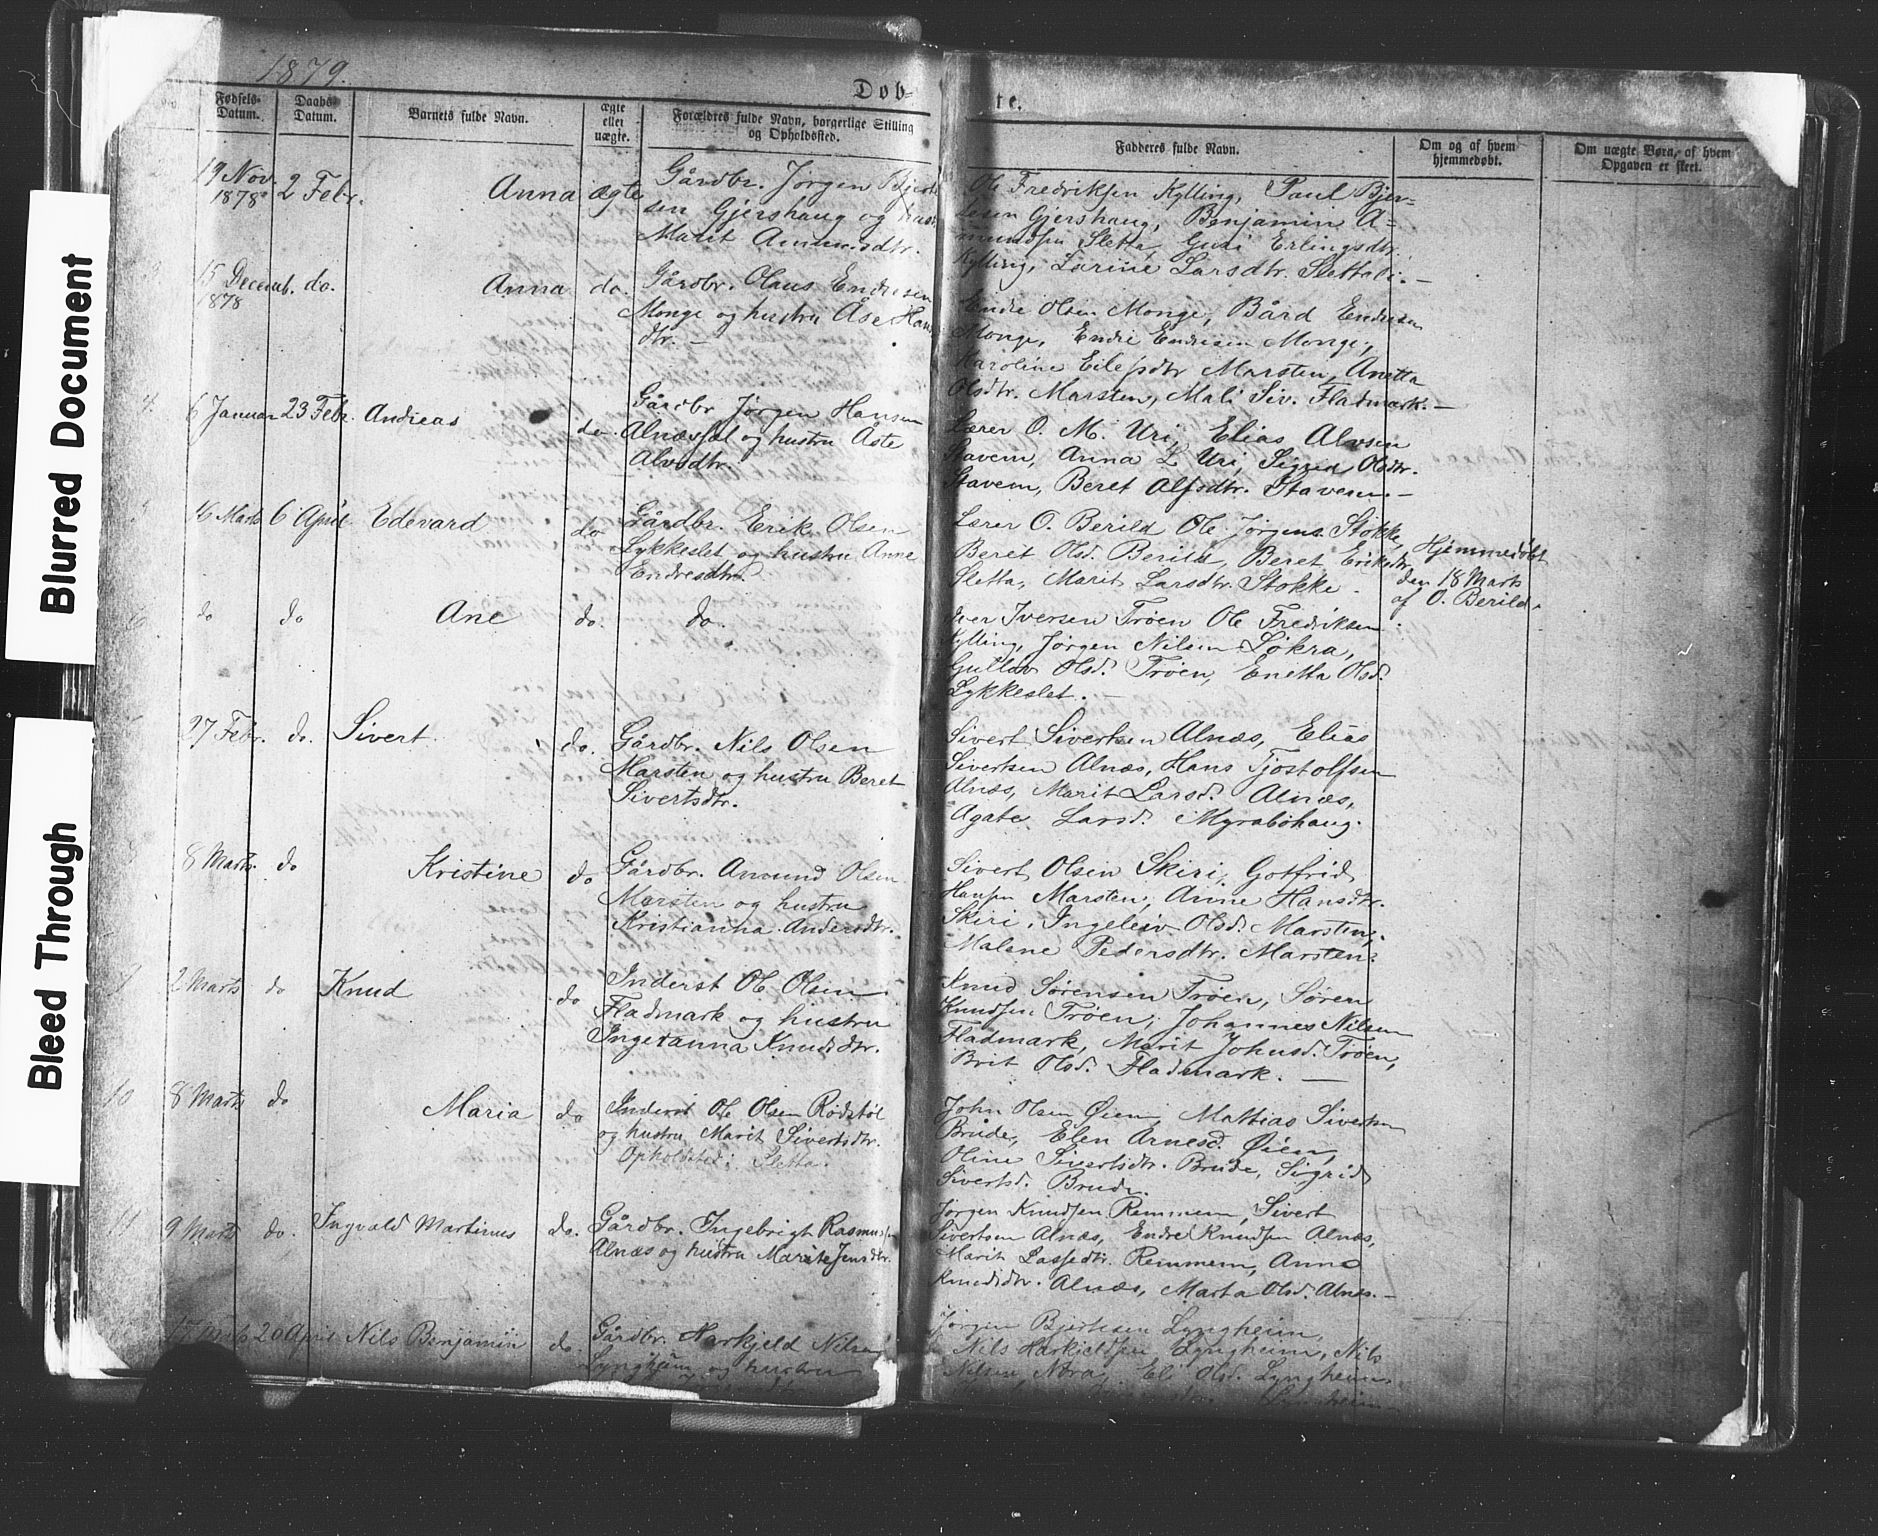 1879.
Døb-
te.
Fødsels-
Datum.
Daabs
Datum.
Barnets fulde Navn.
ægte
eller
uægte.
Forældres fulde Navn, borgerlige Stilling
og Opholdssted.
Fadderes fulde Navn.
Om og af hvem
hjemmedøbt.
Om uægte Børn, af hvem
Opgaven er skeet.
19 Nov.
1878
2 Febr.
Anna
ægte
Gårdbr. Jørgen
sen Gjershaug og
Marit
Ole Fredriksen Kylling, Paul Bjer-
tesen Gjershaug, Benjamin A-
mundsen Sletta, Guri Erlingsdtr.
Kylling, Larine Larsdtr.
15 Decemb.
1878
do.
Anna
do.
Gårdbr. Olaus Endresen
Monge og hustru Åse Hans
dtr. —
Endre Olsen Monge, Bård Endresen
Monge, Endre Endresen Monge,
Karoline Marsten, Anetta
Olsdtr. Marsten, Mali Siv. Fladmark. —
4.
6 Januar
23 Febr.
Andreas
do.
Gårdbr. Jørgen Hansen
og hustru Åste
Alvsdtr.
Lærer O. M. Uri, Elias Alvsen
Stavem, Anna L Uri, Olsdtr.
Stavem, Beret Alfsdtr. Stavem. —
16 Marts
6 April
Edevard
do
Gårdbr. Erik Olsen
Lykkeslet og hustru Anne
Endresdtr.
Lærer O. Berild Ole Jørgens. Stokke,
Beret Olsd. Berild, Beret Eriksdtr.
Sletta, Marit Larsdtr. Stokke.
Hjemmedøbt
den 18 Marts
af O. Berild.
do
do
Ane
do.
do.
Iver Iversen Trøen Ole Fredriksen
Kylling, Jørgen Nilsen Løkra,
Olsd. Trøen, Enetta Olsd.
Lykkeslet. —
27 Febr.
do.
Sivert.
do.
Gårdbr. Nils Olsen
Marsten og hustru Beret
Sivertsdtr.
Sivert Sivertsen Alnæs, Elias
Sivertsen Alnæs, Hans Tjostolfsen
Alnæs, Marit Larsd. Alnæs,
Agate Larsd. Myrabøhaug.
8 Marts
do
Kristine
do
Gårdbr. Amund Olsen
Marsten og hustru
Kristianna Andersdtr.
Sivert Olsen Skiri, Gotfrid
Hansen Marsten, Anne Hansdtr.
Skiri, Ingeleiv Olsd. Marsten,
Malene Pedersdtr. Marsten.
2 Marts
do
Knud
do
Inderst Ole Olsen
Fladmark og hustru
Knudsdtr.
Knud Sørensen Trøen, Søren
Knudsen Trøen, Johannes Nilsen
Fladmark, Marit Johnsd. Trøen,
Brit Olsd. Fladmark. —
10
8 Marts
do
Maria
do
Inderst Ole Olsen Rødstøl
og hustru Marit Sivertsdtr.
Opholdsted: Sletta.
John Olsen Øien, Mathias Sivertsen
Brude, Elen Arnesd Øien,
Oline Sivertsdtr. Brude, Sigrid
Sivertsd. Brude.
11
9 Marts
do.
Ingvald Martinus
do.
Gårdbr. Ingebrigt Rasmussen
Alnæs og hustru Marite Jensdtr.
Jørgen Knudsen Remmem, Sivert
Sivertsen Alnæs, Endre Knudsen Alnæs,
Marit Lassedtr. Remmem, Anne
Knudsdtr. Alnæs, Marta Olsd. Alnæs. —
17 Marts
20 April
Nils Benjamin
do.
Gårdbr. Harkjeld Nilsen
Lyngheim og hustru
Jørgen Bjertesen Lyngheim,
Nils Harkjeldsen Lyngheim, Nils
Nilsen Nora, Eli Olsd. Lyngheim
Lyngheim
Blurred Document
Bleed Through